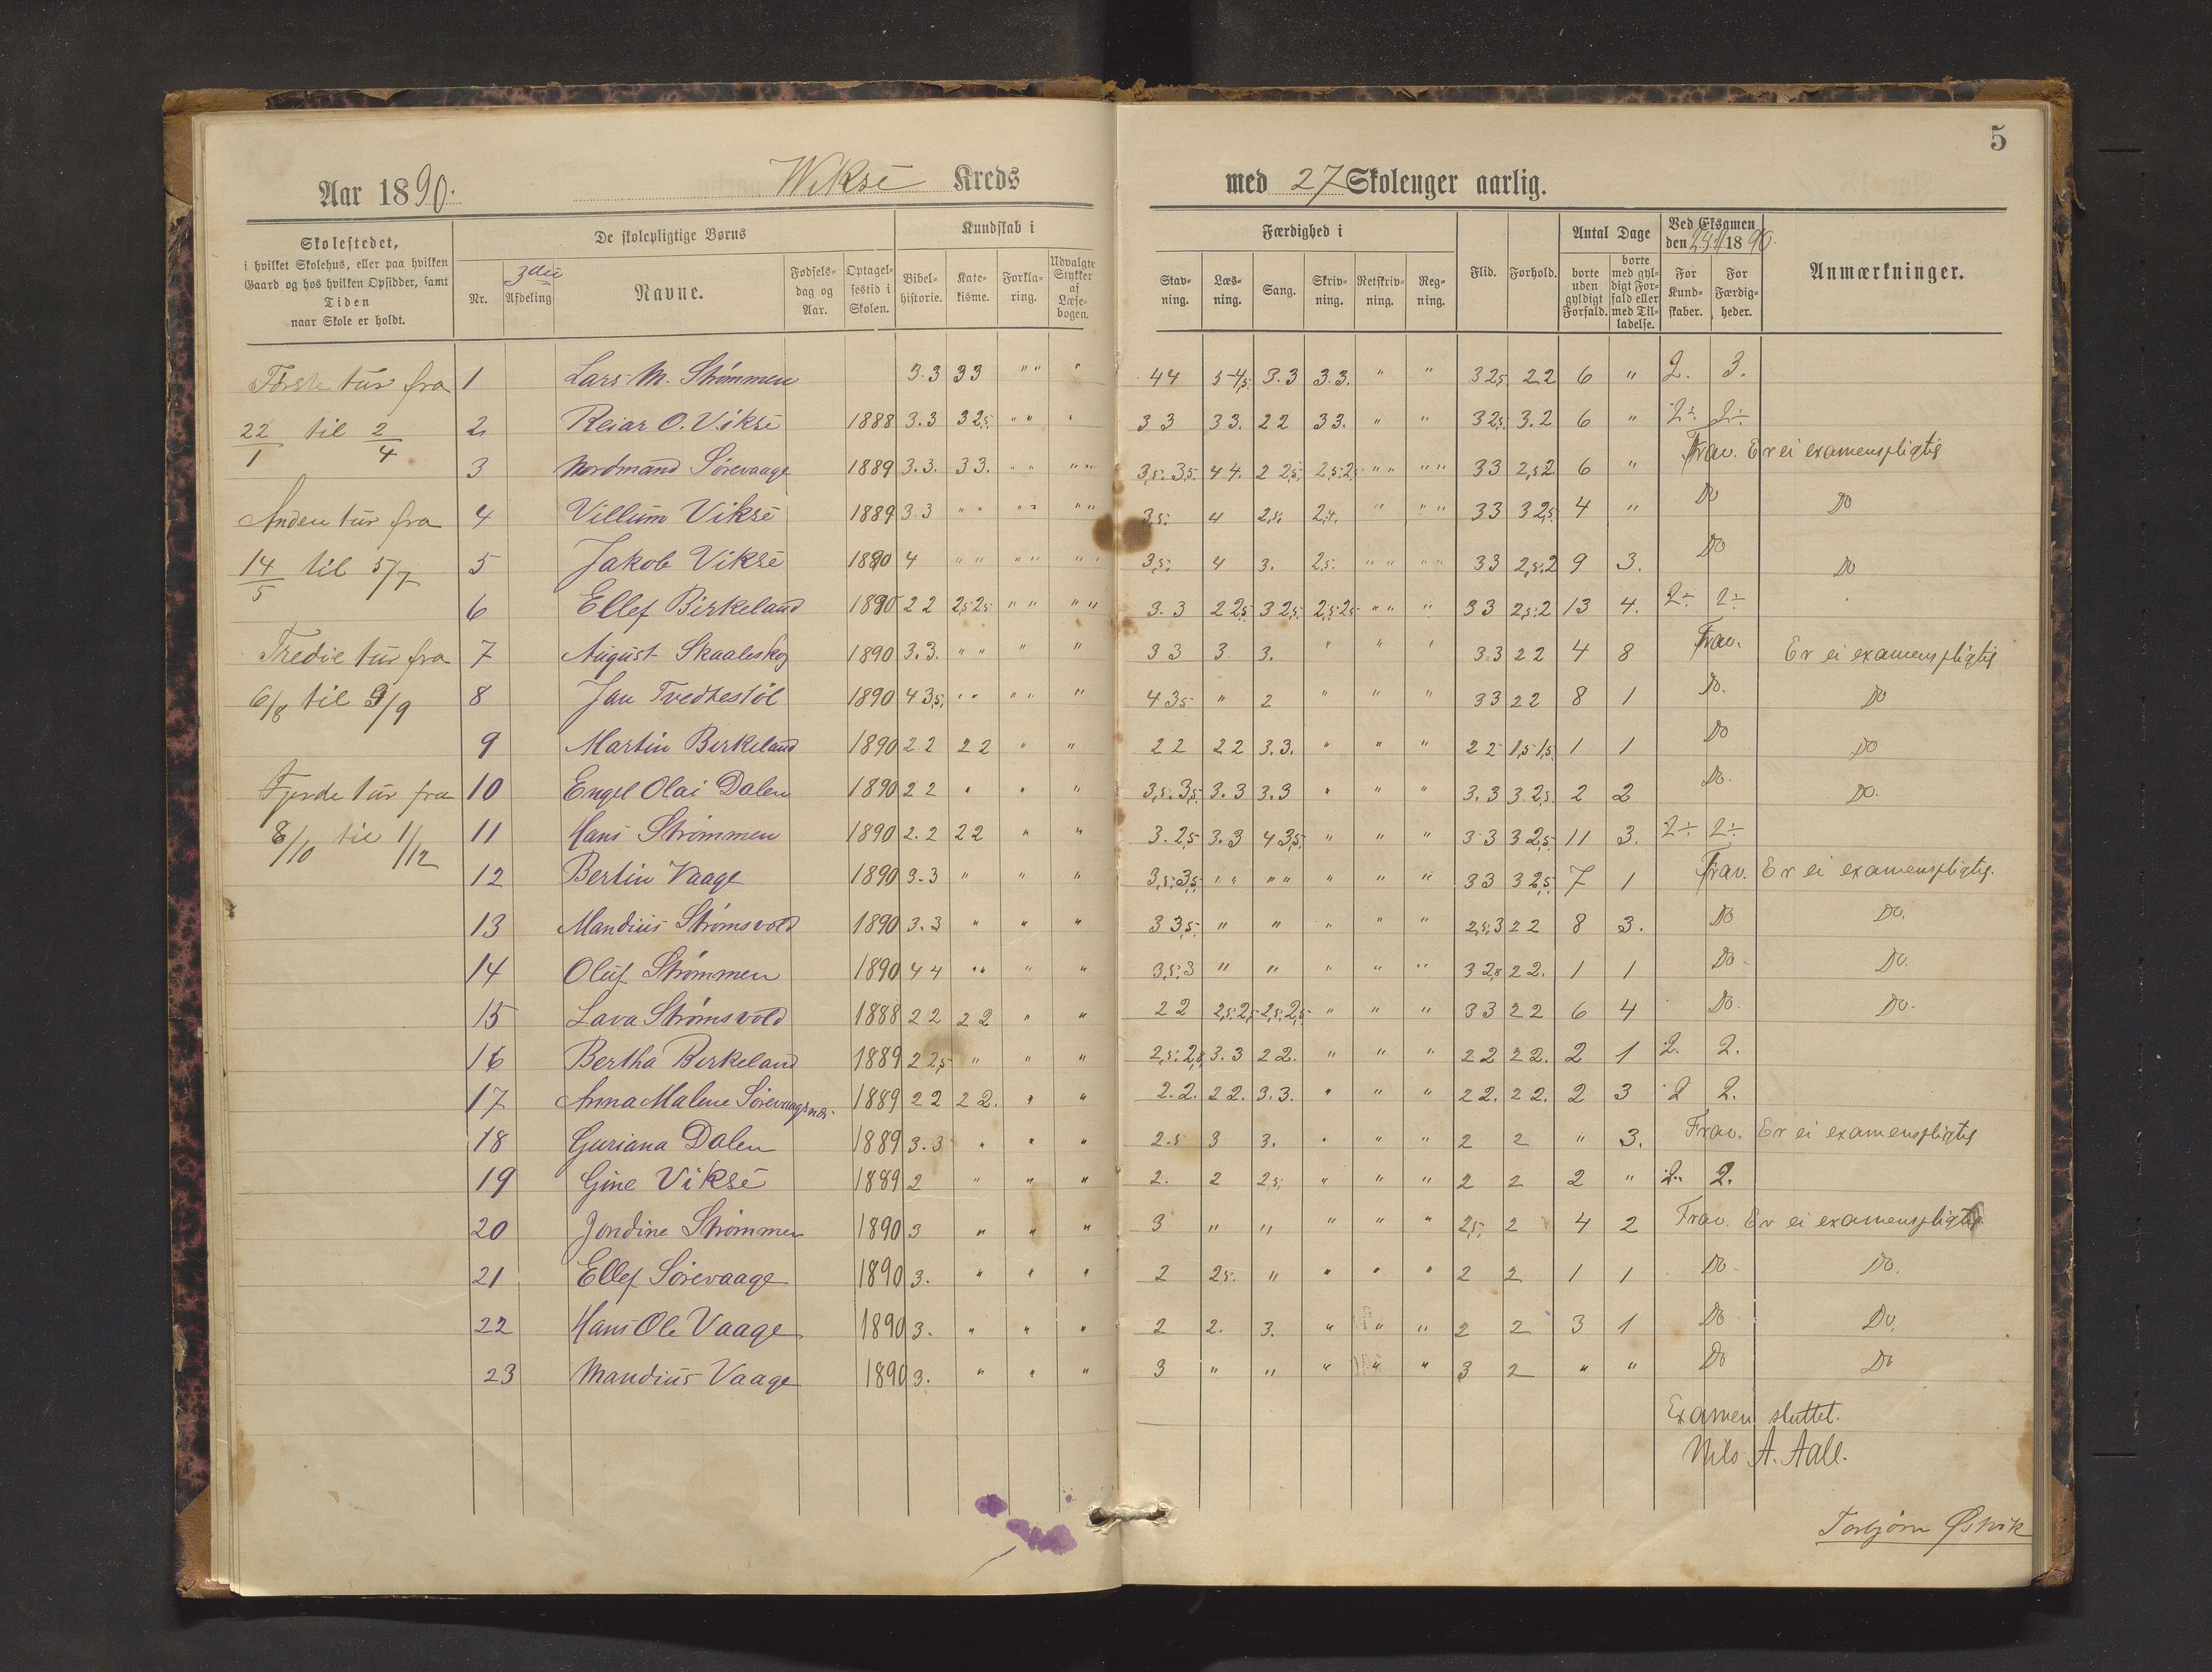 5
Aar 1890. Wiksé Kreds med 27 Skoleuger aarlig.
Skolestedet,
i hvilket Skolehus, eller paa hvilken
Gaard og hos hvilken Opsidder, samt
Tiden
naar Skole er holdt.
De skolepligtige Børns
Nr.
3die
Afdeling
Navne.
Fødsels-
dag og
Aar.
Optagel-
sestid i
Skolen.
Kundskab i
Bibel-
historie.
Kate-
kisme.
Forkla-
ring.
Udvalgte
Stykker
af
Læse-
bogen.
Færdighed i
Stav-
ning.
Læs-
ning.
Sang.
Skriv-
ning.
Retskriv-
ning.
Reg-
ning.
Flid.
Forhold.
Antal Dage
borte
uden
gyldigt
Forfald.
borte
med gyl-
digt For-
fald eller
med Til-
ladelse.
Ved Eksamen
den 1890.
For
Kund-
skaber.
For
Færdig-
heder.
Anmærkninger.
Første tur fra
22/1 til 2/4
Anden tur fra
14/5 til 5/7
Tredie tur fra
6/8 til 9/9
Fjerde tur fra
8/10 til 1/12
1 Lars M. Strømmen 3.3 33 " " " 44 5-4,5. 3.3 3.3. " " 3 2,5 2 2 6 " 2. 3.
2 Reiar O. Viksé 1888 3.3 3 2,5. " " " 3 3 33. 22 33. " " 3 2,5. 3.2 6 " 2÷ 2÷
3 Nordmand Sörevaage 1889 3.3. 33. " " " " 3,5. 3,5. 44. 2 2,5. 2,5. 2, " " " " 33 2,5 2 6 " Frav. Er ei examenspligtig
4 Villum Viksé 1889 3 3 " " " " " " 3,5. 4 2,5. 2,5. " " " 33 3 2,5. 4 " Do Do
5 Jakob Viksé 1890 4 " " " " " " 3,5. 4 3. 2,5. " " " " 33 2,5.2 9 3. Do Do
6 Ellef Birkeland 1890 2 2 2,5 2,5 " " " " 3.3 2 2,5 3 2,5. 2,5. 2,5 " " " 33 2,5.2 13 4. 2÷ 2÷
7 August Skaaleskog 1890 3.3. " " " " " 3 3 3 3. " " " 3.3 2 2 4 8 Frav. Er ei examenspligtig
8 Jan Tvedtestöl 1890 4 3,5. " " " " " 4 3,5 " 2 " " " 33 2 2 8 1 Do. Do
9 Martin Birkeland 1890 2 2 2 2 " " 2 2 2 2 3.3. " " " 2 2 1,5 1,5. 1 1 Do Do
10 Engel Olai Dalen 1890 2 2 " " " 3,5. 3,5. 3.3 3.3 " " " 3.3 3 2,5. 2 2 Do. Do.
11 Hans Strømmen 1890 2.2 2 2 " " 3. 2,5 3.3 4 3,5. " " " 3 3 3 2,5. 11 3. 2÷ 2÷
12 Bertin Vaage 1890 3.3 " " " 3,5. 3,5. " " " " " " " 33 3 2,5. 7 1 Frav. Er ei examenspligtig.
13 Mandius Strømsvold 1890 3.3 " " " 3 3,5. " " " " " 2,5.3 2 2 8 3. Do Do.
14 Oluf Strømmen 1890 4 4 " " " " 3,5.3 " " " " " " 3 2,5 2 2. 1 1 Do Do.
15 Lava Strømsvold 1888 2 2 2 2 " " 2 2 2,5. 2,5 2,5. 2,5 " " " 33 2 2 6 4 Do. Do.
16 Bertha Birkeland 1889 2 2,5 " " " 2,5. 2,5 3.3 2 2. " " " 2 2 2 2. 2 1 2. 2.
17 Anna Malene Sörevaagsnæs. 1889 2 2 2 2. " " 2.2. 2 2. 3.3. " " " 2 2. 2 2. 2 3 2 2.
18 Guriana Dalen 1889 3.3 " " " 2.5 3 3. " " " 2 2 " 3. Frav. Er ei examenspligtig
19 Gine Viksé 1889 2 " " " 2. 2 2,5. " " " 2 2 2 " 2. 2.
20 Jondine Strømmen 1890 3 " " " 3 " " " " " 2,5. 2 4 2 Frav. Er ei examenspligtig
21 Ellef Sörevaage 1890 3. " " " 2 2,5. " " " " 2 2 1 1 Do Do.
22 Hans Ole Vaage 1890 3. " " " 2 2. 3. " " " 2 2 3 1 Do Do.
23 Mandius Vaage 1890 3. " " " 3 " " " " " 3 2 " " Do Do
Examen sluttet.
Nils A. Aall.
Torbjørn Østvik